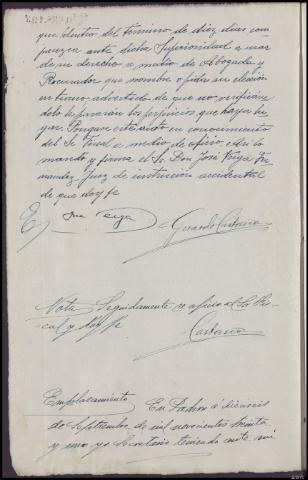 que dentro del termino de diez dias com
parezca ante dicha Superioridad a usar
de su derecho a medio de Abogado y
Procurador que nombre o pida su elección
en turno advertido de que no verifican
dolo le pararán los perjuicios que haya lu
gar. Pongase esto auto en conocimiento
del Sr Fiscal a medio de oficio. Así lo
mandó y firma el Sr Don José Veiga Fer
nandez Juez de instrucción accidental
de que doy fe
E/ José Veiga Gerardo Cardeiro
Nota Seguidamente se oficio al Sr Fis
cal y doy fe
Cardeiro
Emplazamiento En Padron á dieciseis
de Septiembre de mil novecientos treinta
y uno yo Secretario teniendo ante mi